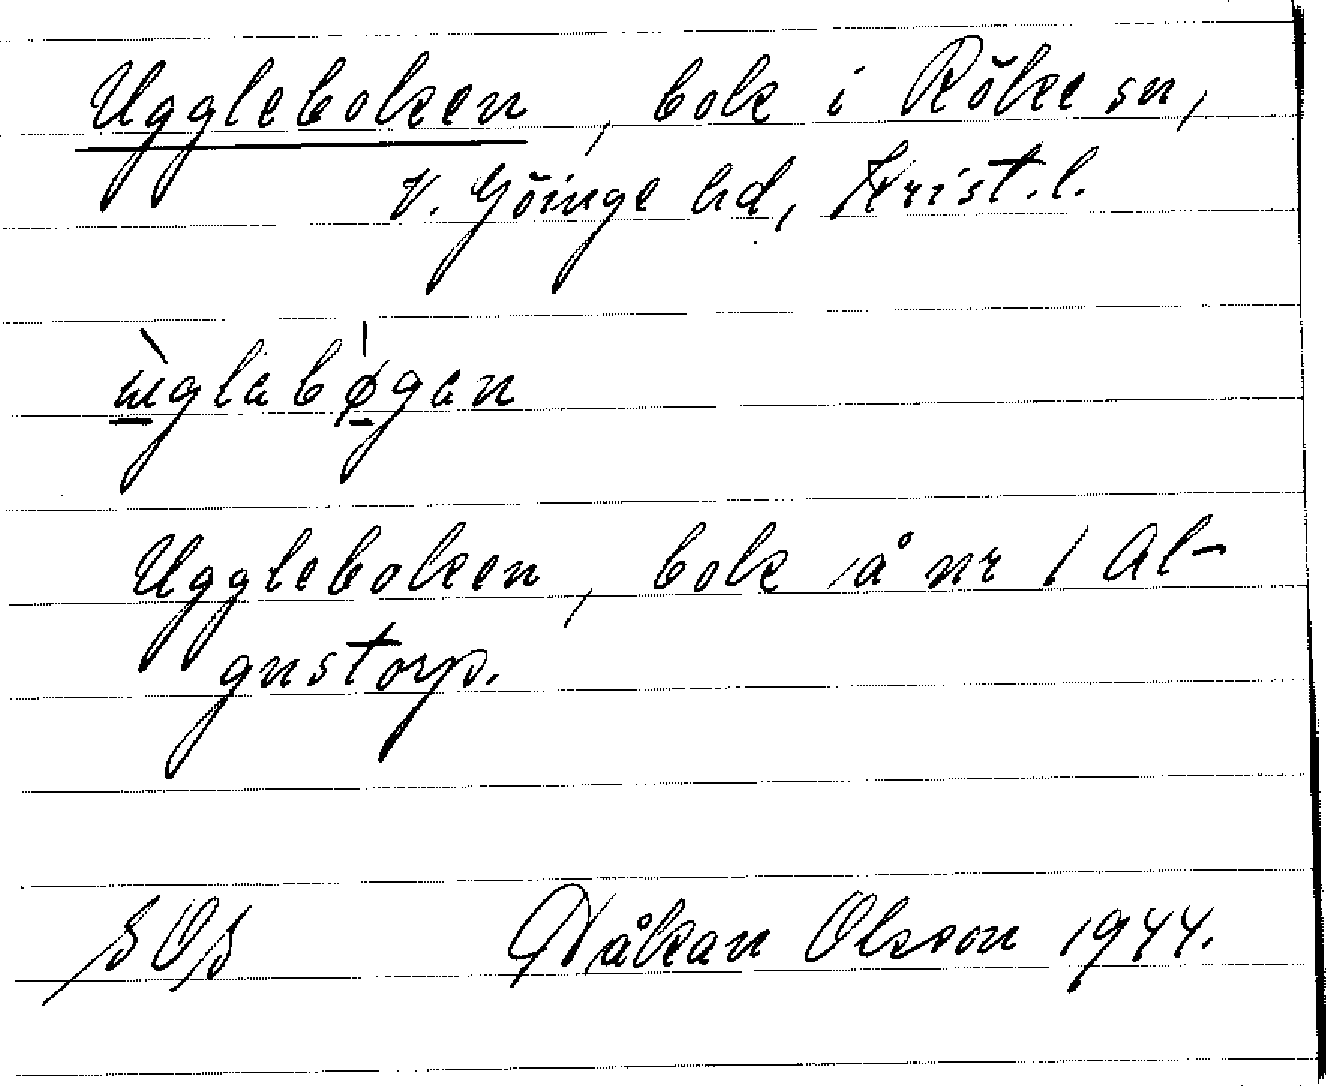 Uggleboken, bok i Röke sn,
V. Göinge hd, Krist. l.
Uggleboken, bok å nr 1 Al-
gustorp.
Håkan Olsson 1944.